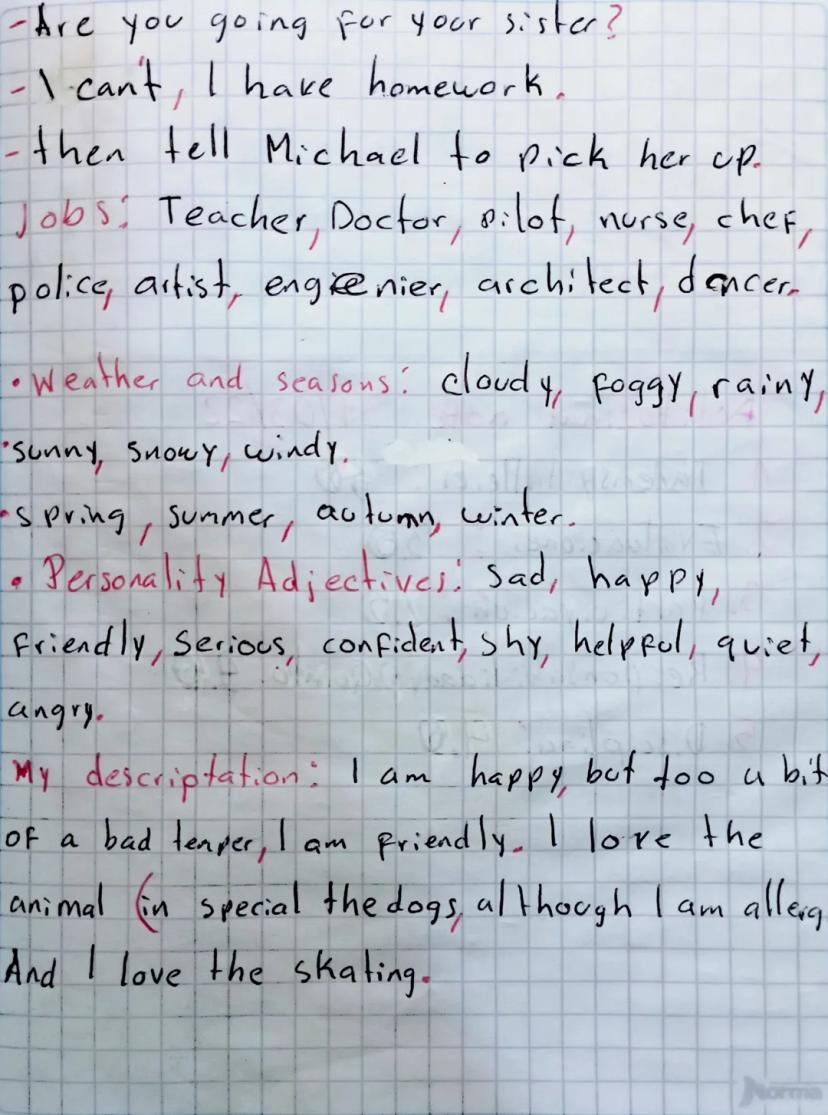 - Are you going for your sister?
- I can't, I have homework.
- then tell Michael to pick her up.
Jobs: Teacher, Doctor, pilot, nurse, chef,
police, artist, engienier, architect, dancer.
• Weather and seasons: cloudy, foggy, rainy,
• sunny, snowy, windy.
• spring, summer, autumn, winter.
• Personality Adjectives: Sad, happy,
friendly, serious, confident, shy, helpful, quiet,
angry.
My descriptation: I am happy, but too a bit
of a bad temper, I am friendly. I love the
animal (in special the dogs, although I am allerg
And I love the skating.
Norma